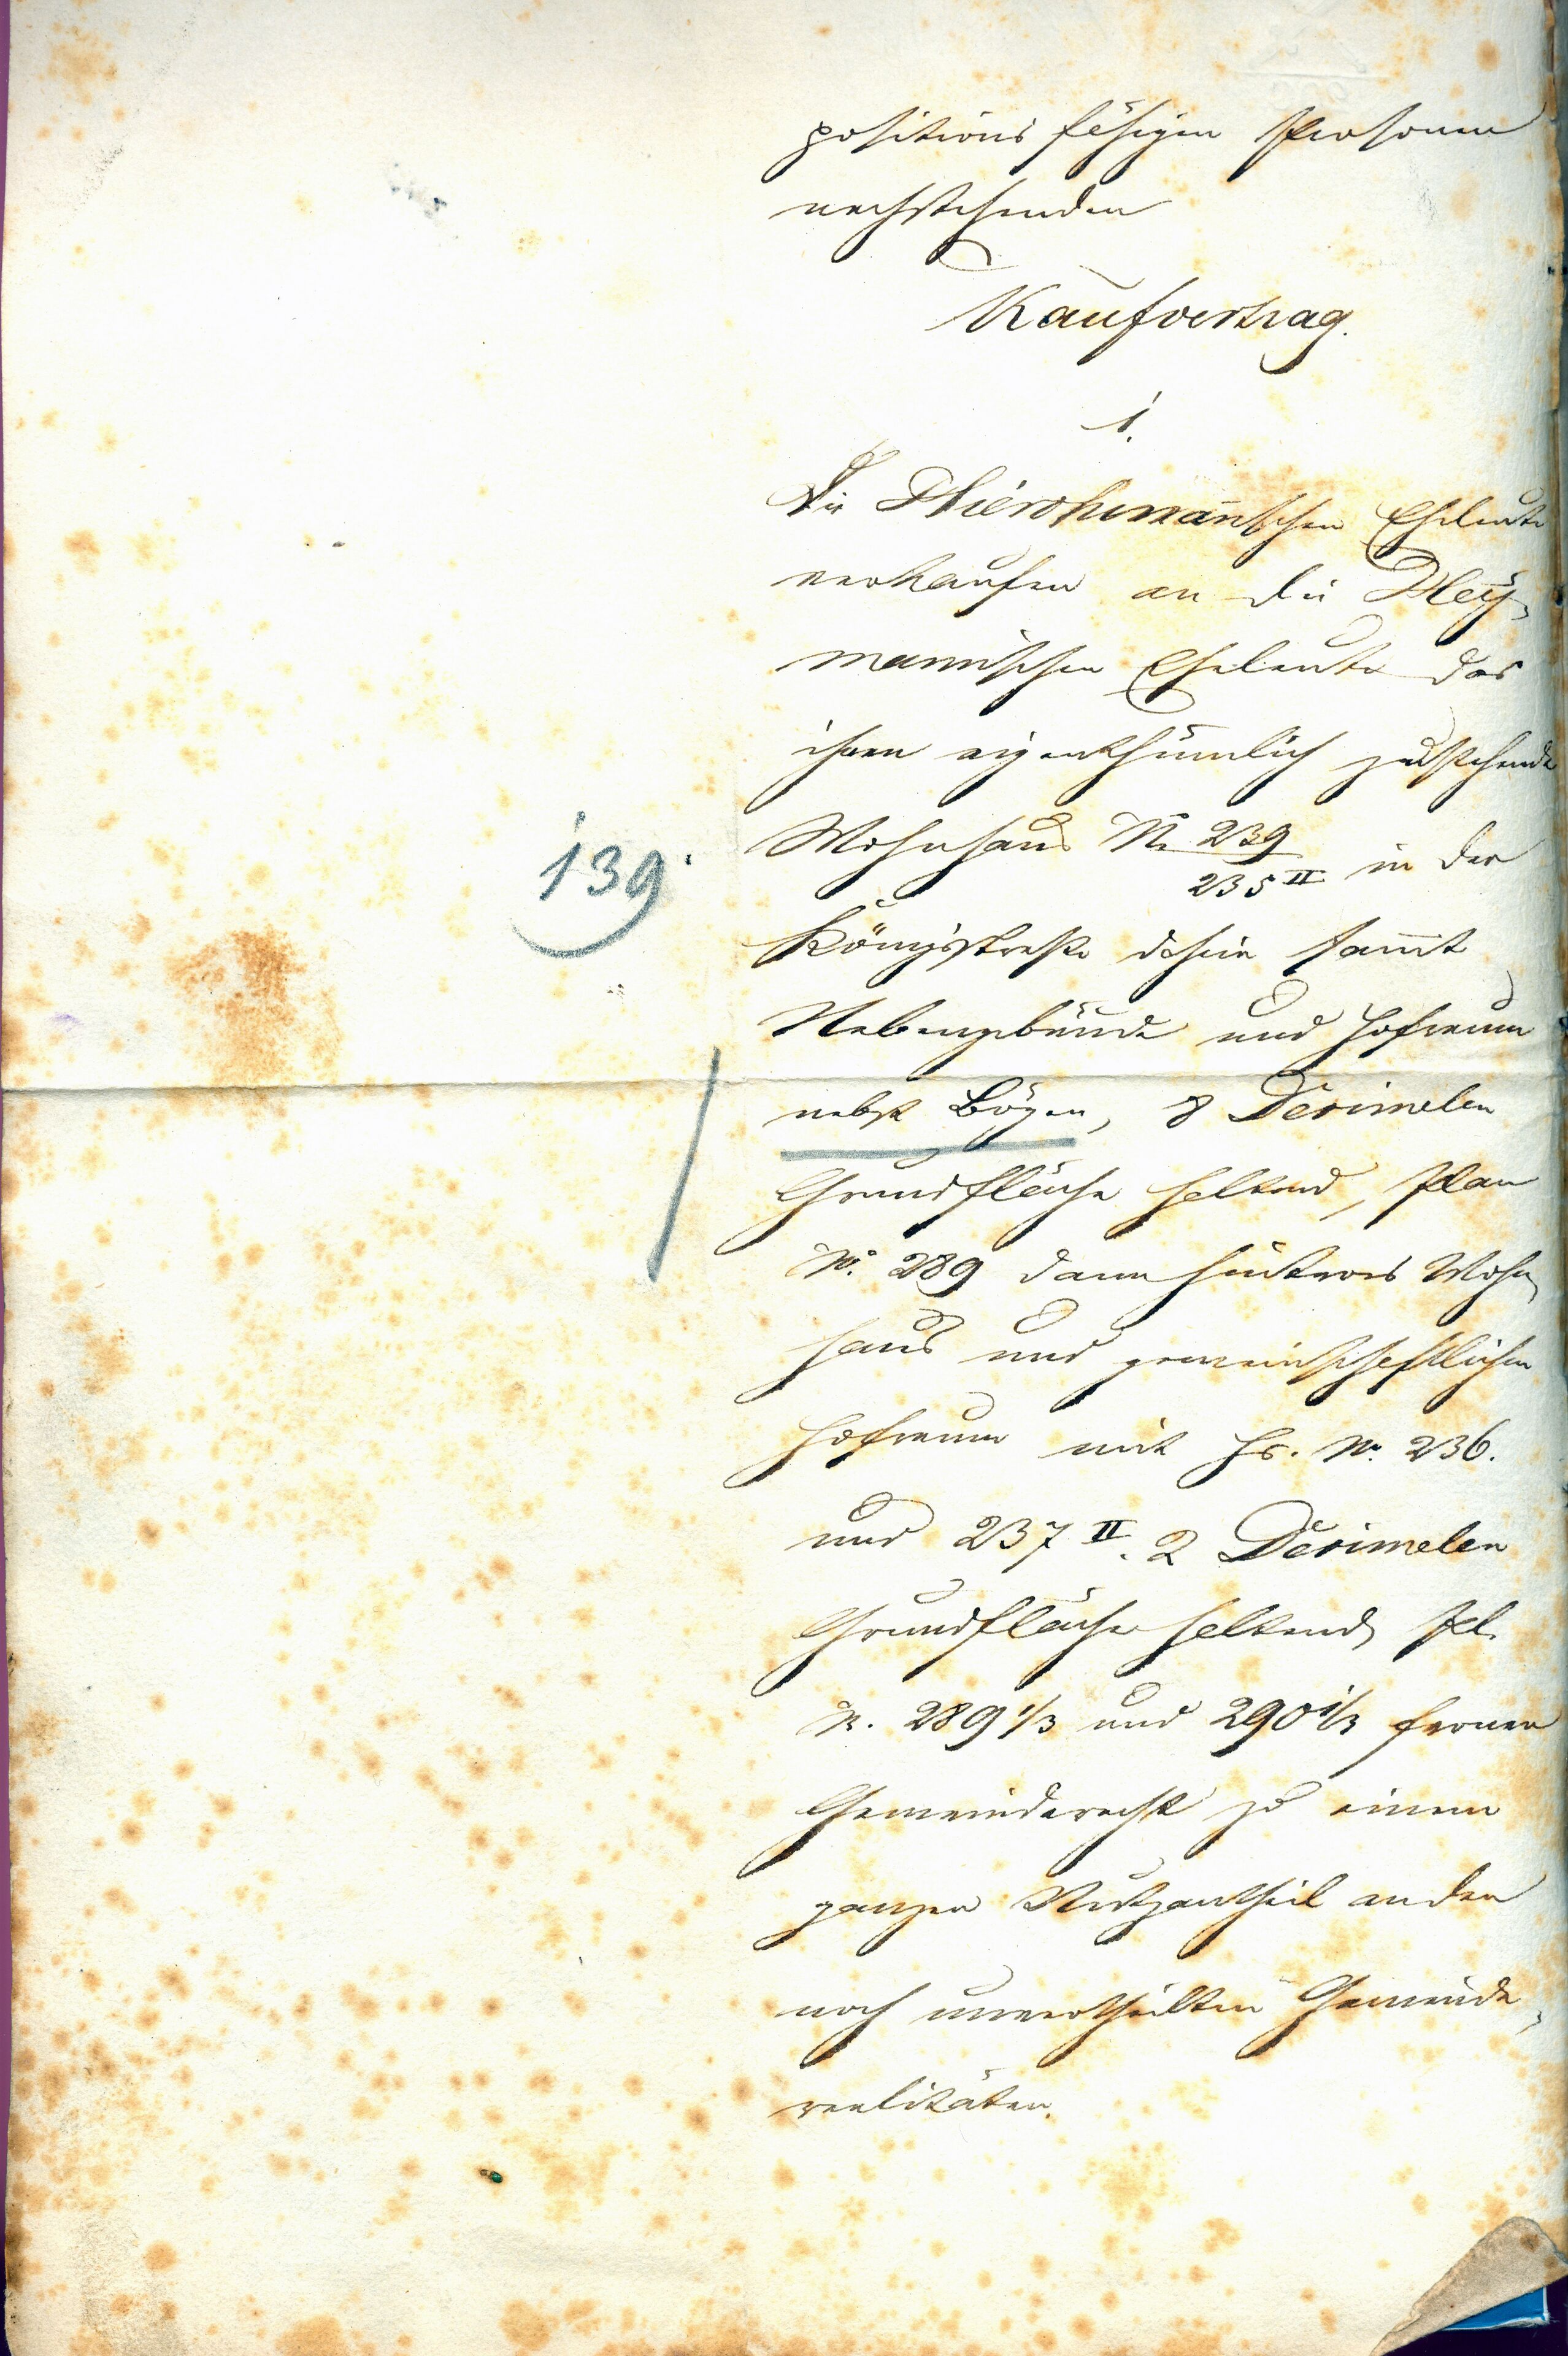 positionsfähigen Personen
nachstehenden
Kaufvertrag.
1.
Die Hierohmannschen Eheleute
verkaufen an die Hey-
mannischen Eheleute das
ihnen eigenthümlich zustehende
Wohnhaus № 239
235 II in der
139.
Königsstraße dahier sammt
Nebengebäude und Hofraum
nebst Bögen, 8 Decimalen
Grundfläche haltend, Plan
N° 289 dann hinteres Wohn-
haus und gemeinschaftlichen
Hofraum mit Hs. N° 236.
und 237 II. 2 Decimalen
Grundfläche haltend Pl.
N. 289 1/3 und 290 1/3 ferner
Gemeinderecht zu einem
ganzen Nutzantheil an den
noch unvertheilten Gemeinde-
realitäten.